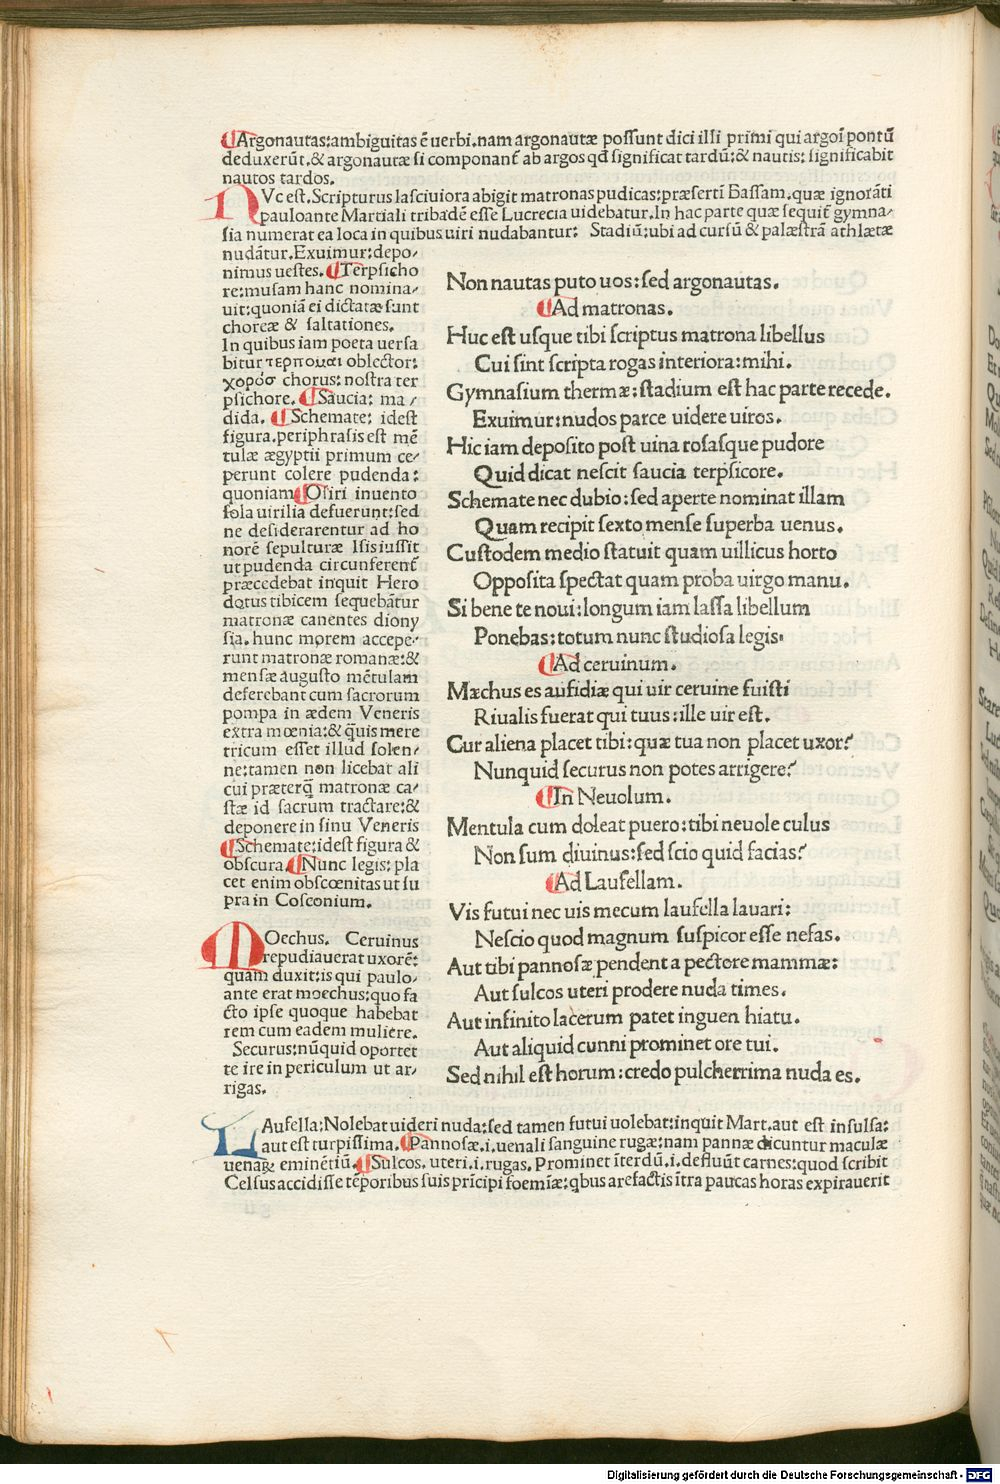 Argonautas:ambiguitas ē uerbi.nam argonautæ possunt dici illi primi qui argoī pontū
deduxerūt.& argonautæ si componant̃ ab argos qd̃ significat tardū:& nautis: significabit
nautos tardos.
HVc est. Scripturus lasciuiora abigit matronas pudicas:præsertī Bassam.quæ ignorāti
pauloante Martiali tribadē esse Lucrecia uidebatur.In hac parte quæ sequit̃ gymna/
sia numerat ea loca in quibus uiri nudabantur: Stadiū:ubi ad cursū & palæstrā athlætæ
nudātur.Exuimur:depo/
nimus uestes. Terpsicho
re:musam hanc nomina/
uit:quoniā ei dictatæ sunt
choreæ & saltationes.
In quibus iam poeta uersa
bitur τερπομαι oblector:
χορόσ chorus: nostra ter
psichore. Saucia: ma/
dida. Schemate: idest
figura.periphrasis est mē
tulæ ægyptii primum ce/
perunt colere pudenda:
quoniam Osiri inuento
sola uirilia defuerunt:sed
ne desiderarentur ad ho
norē sepulturæ Isis iussit
ut pudenda circunferent̃
præcedebat inquit Hero
dotus tibicem sequebātur
matronæ canentes diony
sia. hunc morem accepe/
runt matronæ romanæ:&
mense augusto mētulam
deferebant cum sacrorum
pompa in ædem Veneris
extra mœnia:& q̄uis mere
tricum esset illud solen/
ne:tamen non licebat ali
cui præterq̄ matronæ ca/
stæ id sacrum tractare:&
deponere in sinu Veneris
Schemate:idest figura &
obscura. Nunc legis: pla
cet enim obscœnitas ut su
pra in Cosconium.
Non nautas puto uos: sed argonautas.
Ad matronas.
Huc est usque tibi scriptus matrona libellus
Cui sint scripta rogas interiora: mihi.
Gymnasium thermæ: stadium est hac parte recede.
Exuimur: nudos parce uidere uiros.
Hic iam deposito post uina rosasque pudore
Quid dicat nescit saucia terpsicore.
Schemate nec dubio: sed aperte nominat illam
Quam recipit sexto mense superba uenus.
Custodem medio statuit quam uillicus horto
Opposita spectat quam proba uirgo manu.
Si bene te noui: longum iam lassa libellum
Ponebas: totum nunc studiosa legis.
Ad ceruinum.
Mæchus es aufidiæ qui uir ceruine fuisti
Riualis fuerat qui tuus: ille uir est.
Cur aliena placet tibi: quæ tua non placet uxor?
Nunquid securus non potes arrigere?
In Neuolum.
Mentula cum doleat puero: tibi neuole culus
Non sum diuinus: sed scio quid facias?
Ad Laufellam.
Vis futui nec uis mecum laufella lauari:
Nescio quod magnum suspicor esse nefas.
Aut tibi pannosæ pendent a pectore mammæ:
Aut sulcos uteri prodere nuda times.
Aut infinito lacerum patet inguen hiatu.
Aut aliquid cunni prominet ore tui.
Sed nihil est horum: credo pulcherrima nuda es.
MOechus. Ceruinus
repudiauerat uxorē:
quam duxit:is qui paulo/
ante erat moechus:quo fa
cto ipse quoque habebat
rem cum eadem muliere.
Securus:nūquid oportet
te ire in periculum ut ar/
rigas.
LAufella:Nolebat uideri nuda:sed tamen futui uolebat:inquit Mart.aut est insulsa:
aut est turpissima. Pannosæ.i.uenali sanguine rugæ:nam pannæ dicuntur maculæ
uenaꝝ eminētiū. Sulcos. uteri.i.rugas. Prominet īterdū.i.defluūt carnes:quod scribit
Celsus accidisse tēporibus suis prīcipi foemīæ:qbus arefactis ītra paucas horas expirauerit
Digitalisierung gefördert durch die Deutsche Forschungsgemeinschaft - DFG